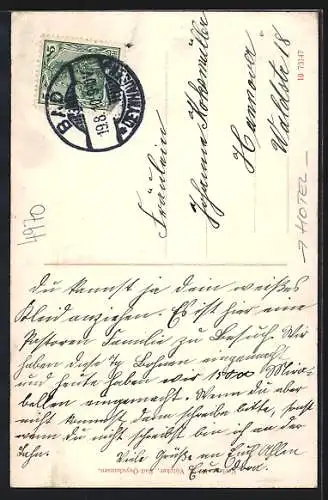 5
BAD OEYNHAUSEN
19.8.
Fräulein
Johanna Kokemüller
Hannover
Waldstr 18
10 73147
4970
→ HOTEL
Du kannst ja dein weißes
Kleid anziehen. Es ist hier eine
Pastoren Familie zu Besuch. Wir
haben diese Bohnen eingemacht
und heute haben wir 1500 Mira-
bellen eingemacht. Wenn du aber
nicht kommst dann schreibe bitte, sonst
wenn du nicht schreibst bin ich an der
Bahn.
Viele Grüße an Euch Allen
Eure
Bad-Oeynhausen.